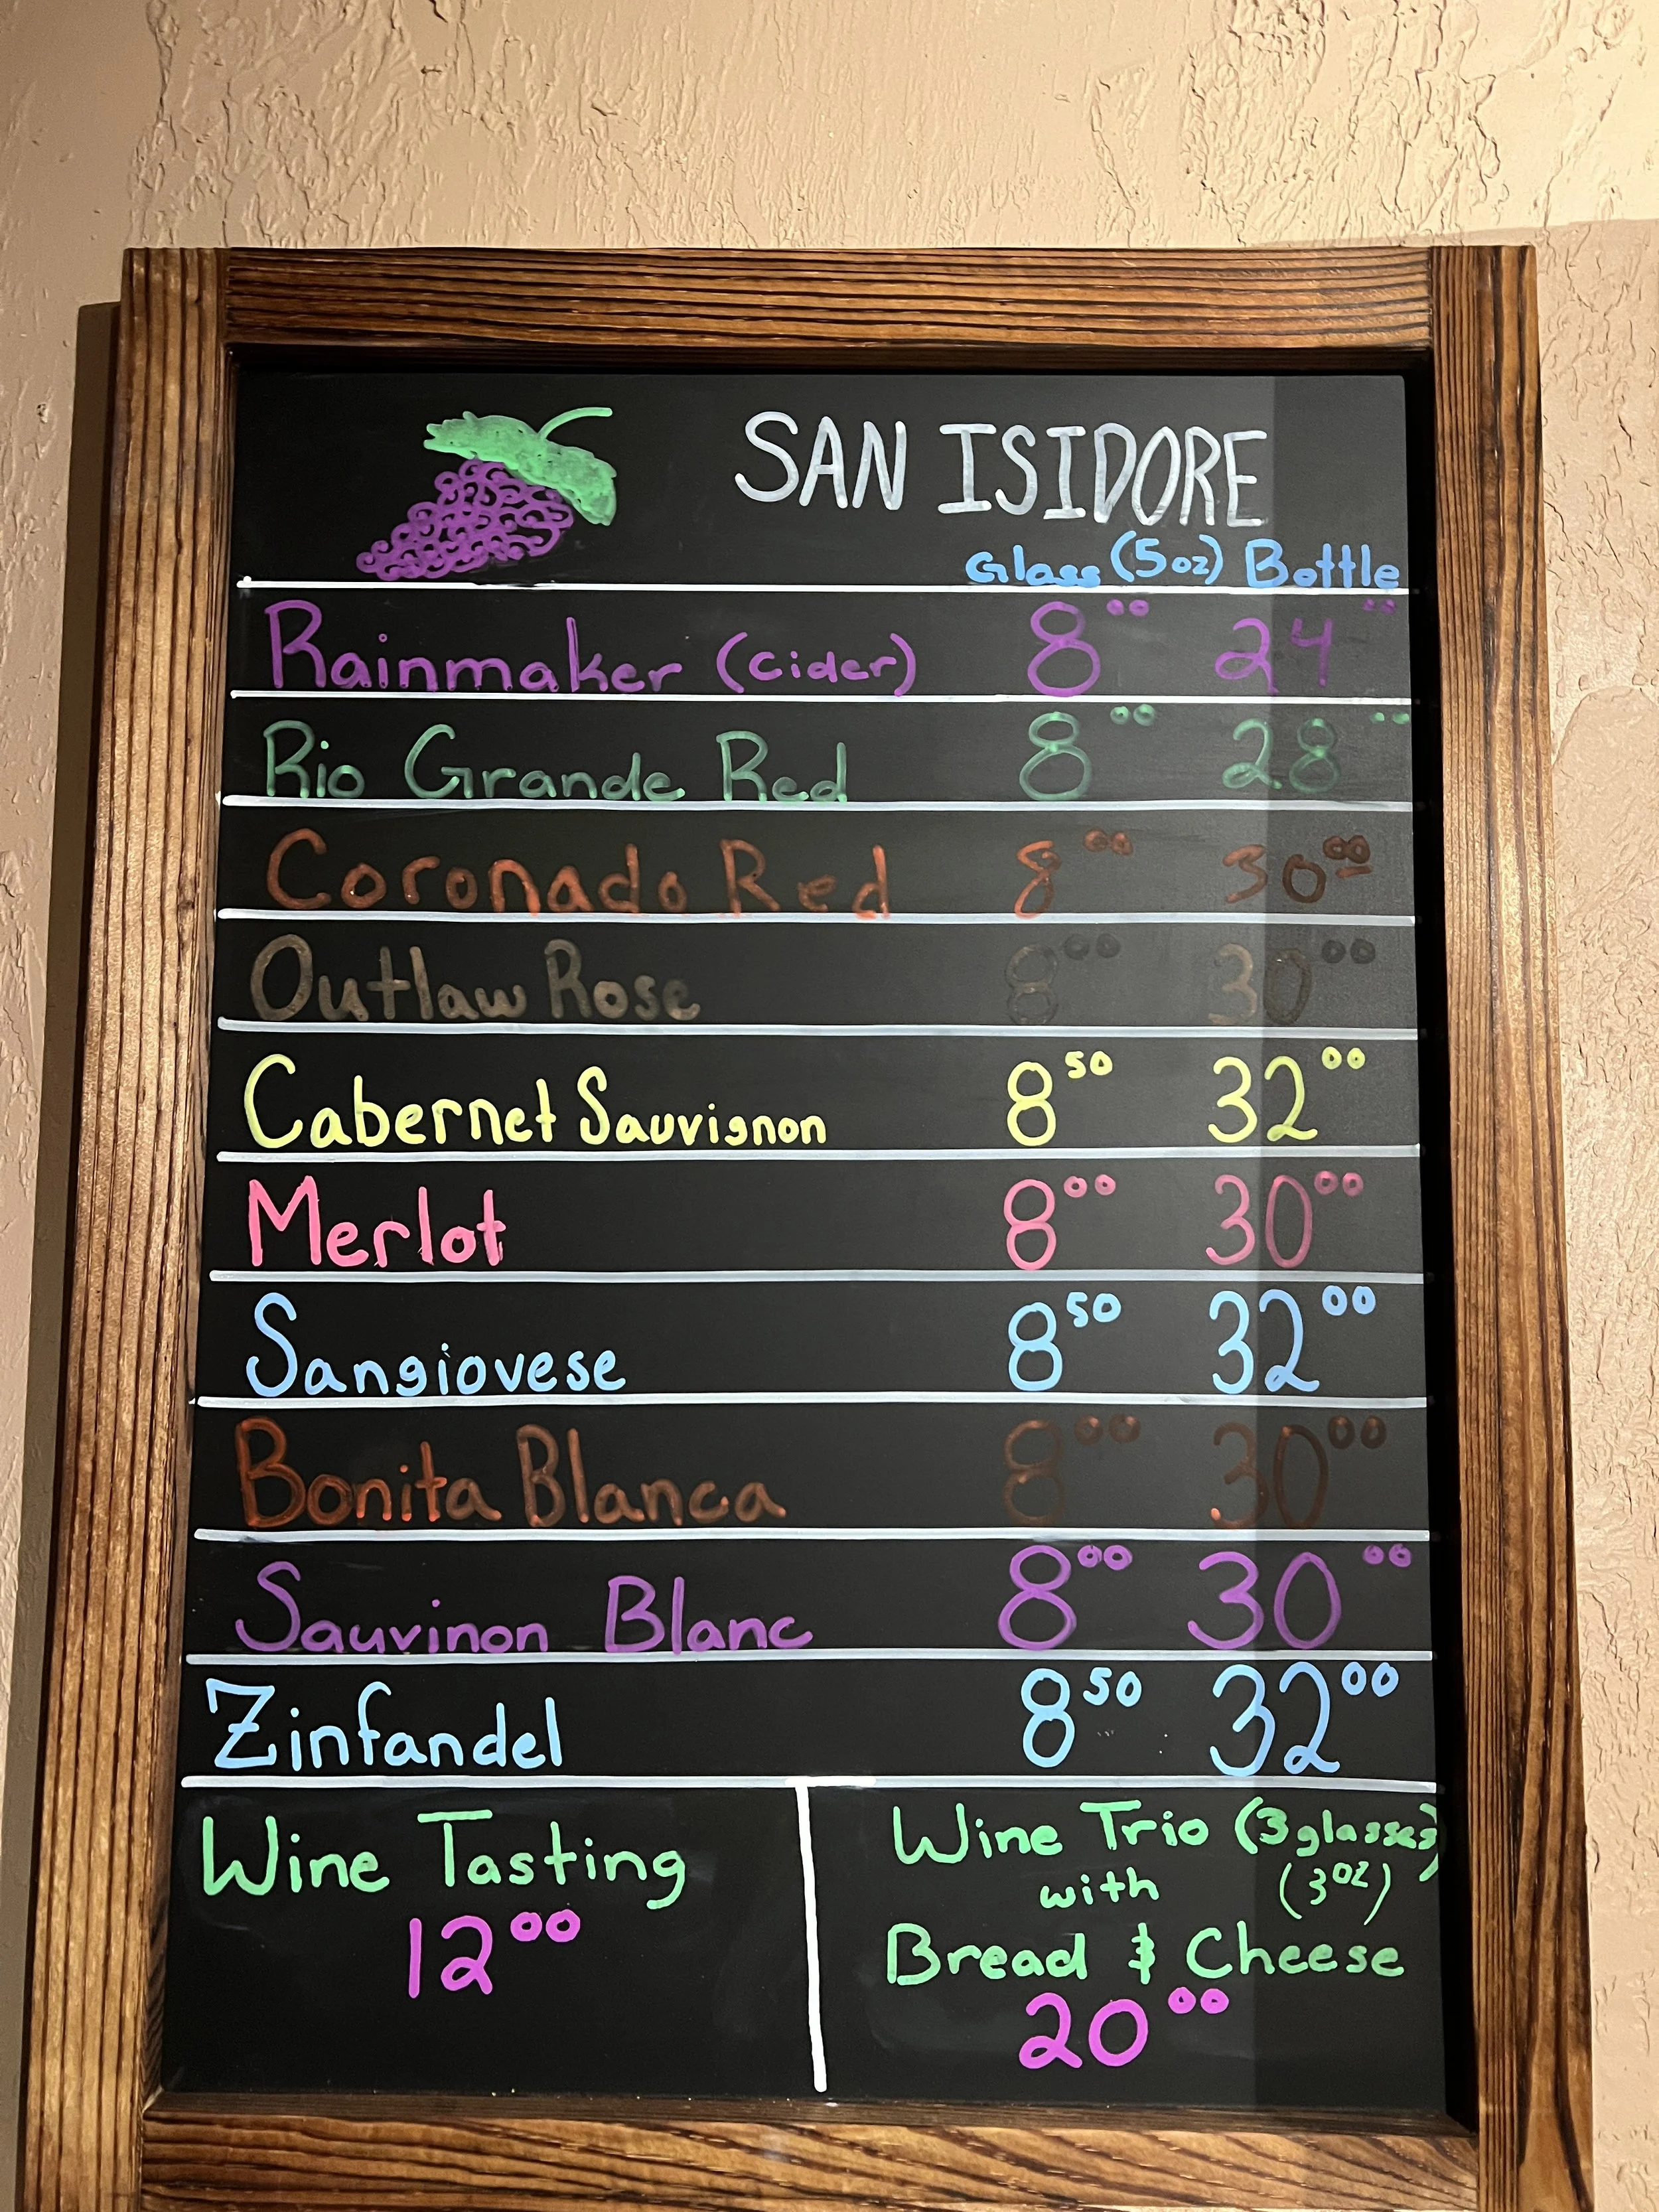 SAN ISIDORE
Glass (5oz) Bottle
Rainmaker (cider) 8 00 24 00
Rio Grande Red 8 00 28 00
Coronado Red 8 00 30 00
Outlaw Rose 8 00 30 00
Cabernet Sauvignon 8 50 32 00
Merlot 8 00 30 00
Sangiovese 8 50 32 00
Bonita Blanca 8 00 30 00
Sauvinon Blanc 8 00 30 00
Zinfandel 8 50 32 00
Wine Tasting
12 00
Wine Trio (3 glasses)
with (3oz)
Bread & Cheese
20 00